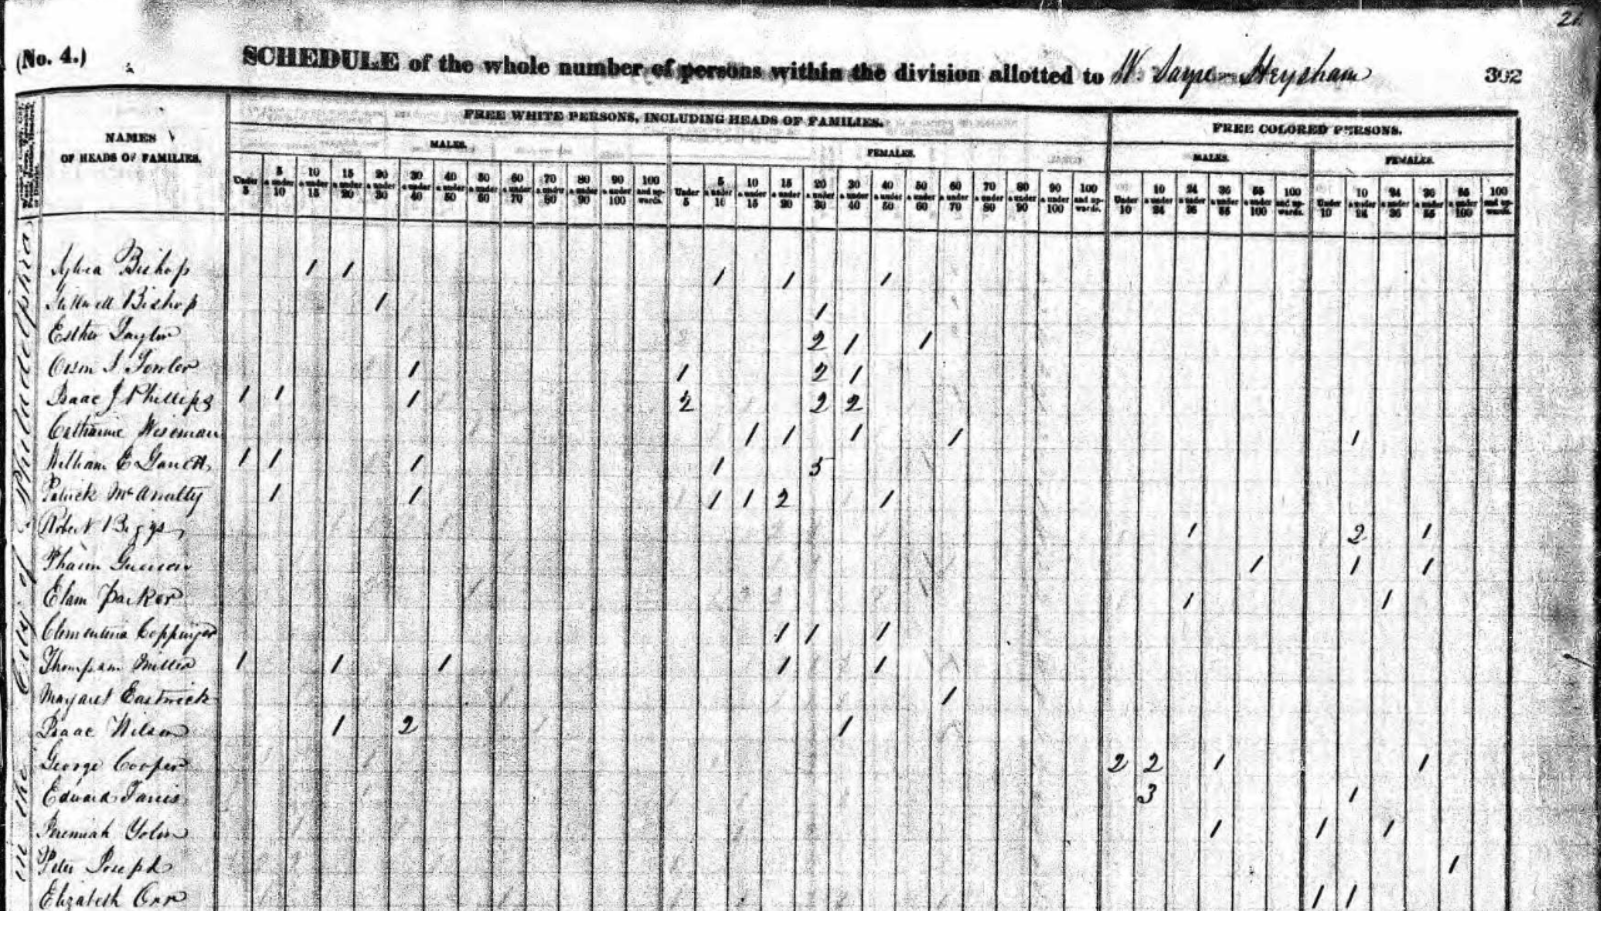 (No. 4.) SCHEDULE of the whole number of persons within the division allotted to W. Sayre Heysham 302
FREE WHITE PERSONS, INCLUDING HEADS OF FAMILIES. FREE COLORED PERSONS.
NAMES OF HEADS OF FAMILIES. MALES. FEMALES. MALES. FEMALES.
Under 5 5 & under 10 10 & under 15 15 & under 20 20 & under 30 30 & under 40 40 & under 50 50 & under 60 60 & under 70 70 & under 80 80 & under 90 90 & under 100 100 and upwards. Under 5 5 & under 10 10 & under 15 15 & under 20 20 & under 30 30 & under 40 40 & under 50 50 & under 60 60 & under 70 70 & under 80 80 & under 90 90 & under 100 100 and upwards. Under 10 10 & under 24 24 & under 36 36 & under 55 55 & under 100 100 and upwards. Under 10 10 & under 24 24 & under 36 36 & under 55 55 & under 100 100 and upwards.
in the City of Philadelphia
Sylvia Bishop 1 1 1 1 1
Bishop 1 1
Esther Taylor 2 1 1
Orson S Fowler 1 1 2 1
Isaac J Phillips 1 1 1 2 2 2
Catharine Wiseman 1 1 1 1 1
William E Garrett 1 1 1 1 5
Patrick McAnulty 1 1 1 1 2 1
Robert Biggs 1 2 1
1 1 1
Elam Parker 1 1
Clementina Coppinger 1 1 1
Thompson Miller 1 1 1 1 1
Margaret Eastwick 1
Isaac Wilson 1 2 1
George Cooper 2 2 1 1
Edward 3 1
Jeremiah 1 1 1
Peter Joseph 1
Elizabeth Orr 1 1